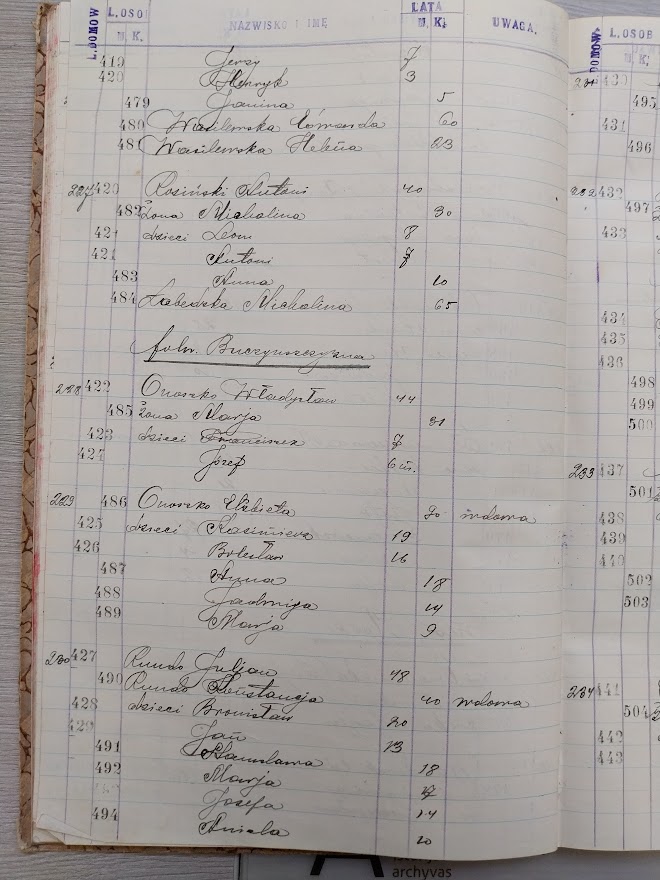 L. DOMOW L. OSO NAZWISKO I IMIĘ LATA UWAGA.
M. K. M. K.
419 Jerzy 7
420 Henryk 3
479 Janina 5
480 Wasilewska 60
481 Wasilewska Helena 23
227 420 Rosiński Antoni 40
482 Żona Michalina 30
421 dzieci Leon 8
421 Antoni 7
483 Anna 10
484 Michalina 65
folw. Buczynszczyzna
228 422 Onoszko Władysław 44
485 Żona Marja 31
423 dzieci Franciszek 7
424 Józef 6 m.
229 486 Onoszko Elżbieta wdowa
425 dzieci Kazimierz 19
426 Bolesław 16
487 Anna 18
488 Jadwiga 14
489 Marja 9
230 427 Rundo Juljan 48
490 Rundo Konstancja 40 wdowa
428 dzieci Bronisław 20
429 Jan 13
491 Stanisława 18
492 Marja
Józefa 14
494 Aniela 10
L. DOMOW L. OSOB
M. K.
231 430
495
431
496
232 432
497
433
434
435
436
498
499
500
233 437
501
438
439
440
502
503
234 441
504
442
443
archyvas